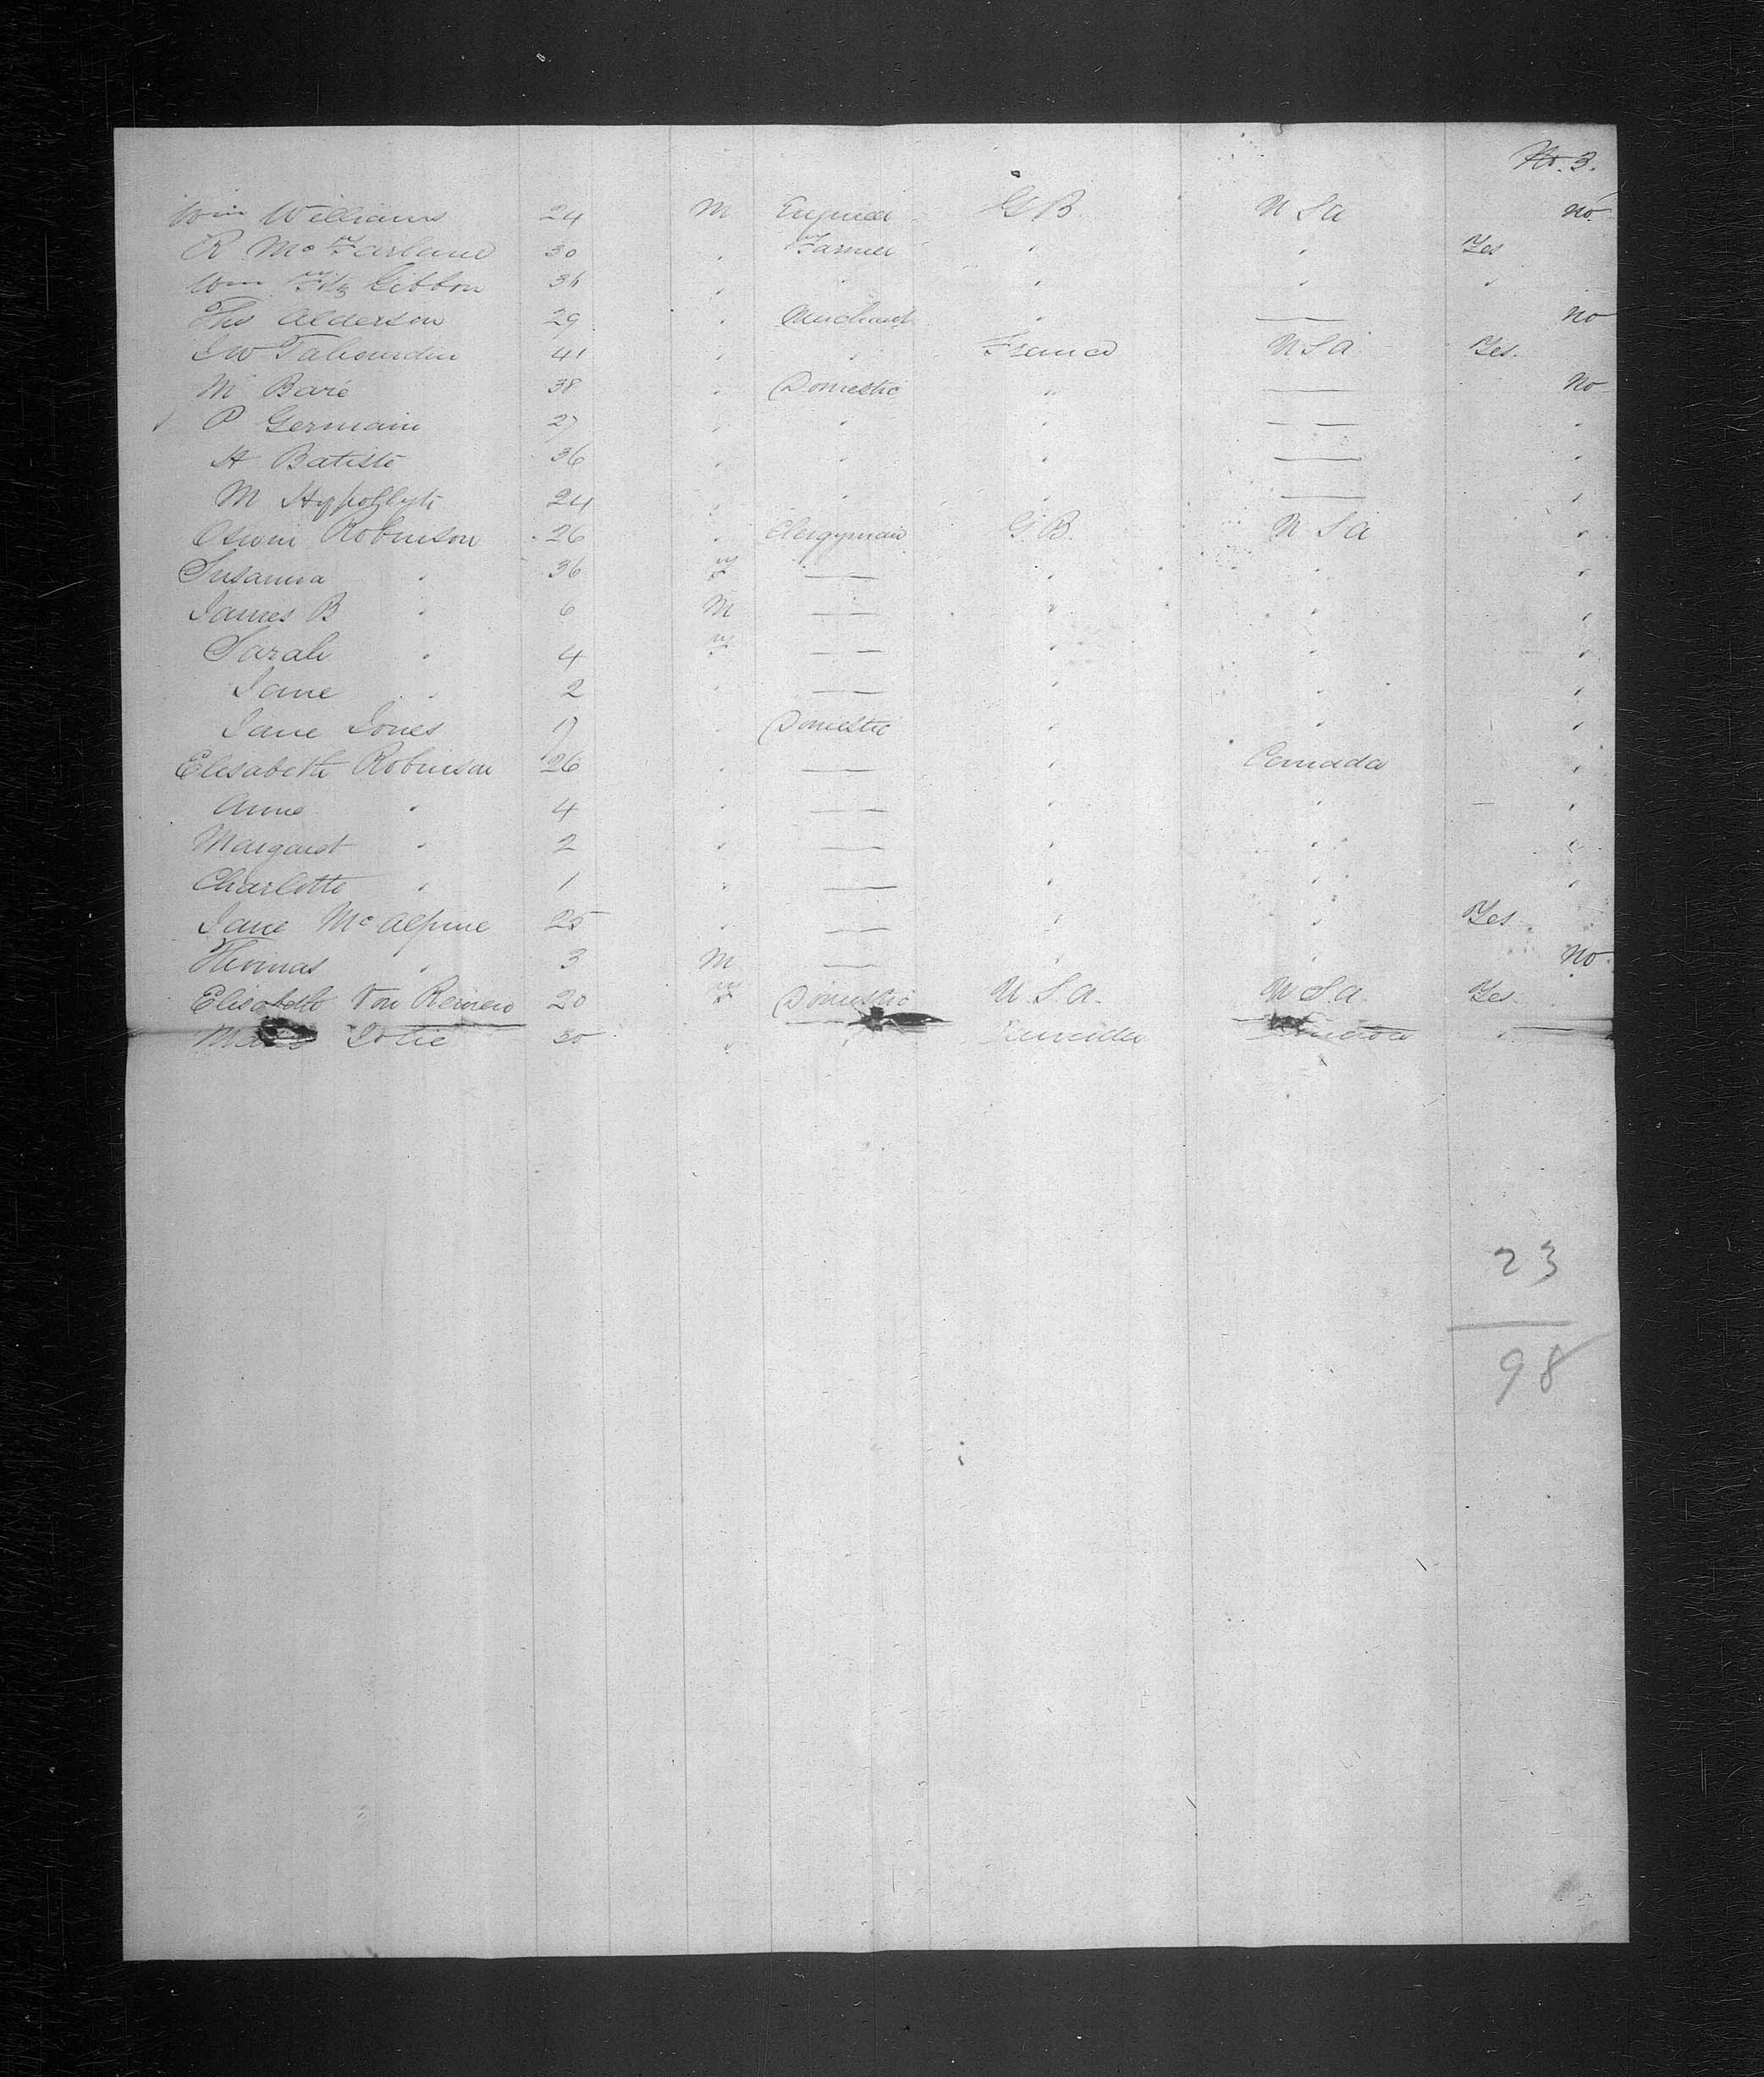 No. 3.
Wm Williams 24 M Engineer G B. U S A No
R McFarland 30 " Farmer " " Yes
Wm Fitz Gibbon 36 " " " " "
Ths Alderson 29 " Merchant " — No
J W Tabourdin 41 " " France U S A Yes.
M Barié 38 " Domestic " — No
P Germain 27 " " " — "
H Batiste 36 " " " — "
M Hypollyte 24 " " " — "
Robinson 26 " Clergyman G. B. U S A "
Susanna " 36 F — " " "
James B " 6 M — " " "
Sarah " 4 F — " " "
Jane " 2 " — " " "
Jane Jones 17 " Domestic " " "
Elisabeth Robinson 26 " — " Canada "
Anne " 4 " — " " "
Margaret " 2 " — " " "
Charlotte " 1 " — " " "
Jane McAlpine 25 " — " " Yes
Thomas " 3 M — " " No.
Elisabeth Von 20 F Domestic U. S. A. U S A. Yes
30 " "
23
98